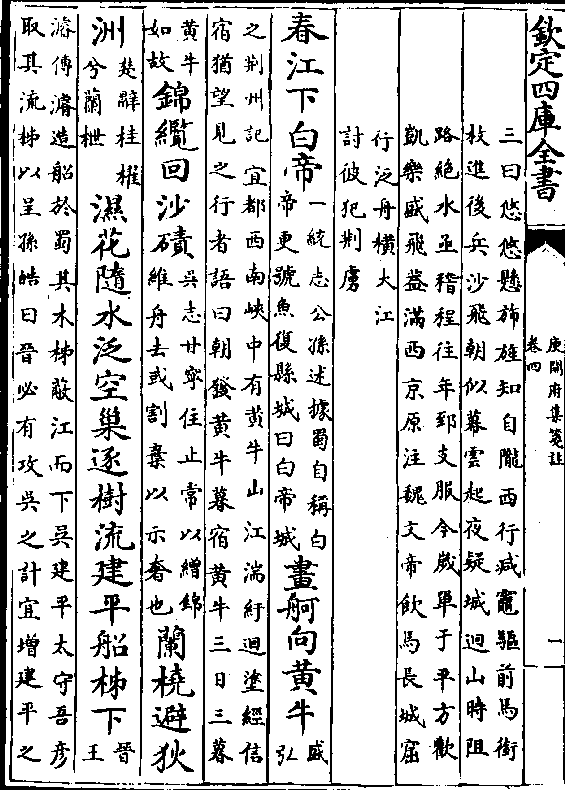 欽定四庫全書
庾開府集箋註
卷四
一
三曰悠悠懸旆旌知自隴西行减竈驅前馬銜
枚進後兵沙飛朝似幕雲起夜疑城迴山時阻
路絶水亟稽程往年郅支服今歲單于平方歡
凱樂盛飛葢滿西京原注魏文帝飲馬長城窟
行泛舟横大江
討彼犯荆虜
春江下白帝
一統志公孫述據蜀自稱白
帝更號魚復縣城曰白帝城
畫舸向黄牛
盛弘
之荆州記宜都西南峽中有黄牛山江湍紆迴塗經信
宿猶望見之行者語曰朝發黄牛暮宿黄牛三日三暮
黄牛
如故
錦纜回沙磧
吳志甘寜住止常以繒錦
維舟去或割棄以示奢也
蘭橈避荻
洲
楚辭桂櫂
兮蘭枻
濕花隨水泛空巢逐樹流建平船柹下
晉王
濬傳濬造船於蜀其木柹蔽江而下吳建平太守吾彦
取其流柹以呈孫皓曰晉必有攻吳之計宜增建平之